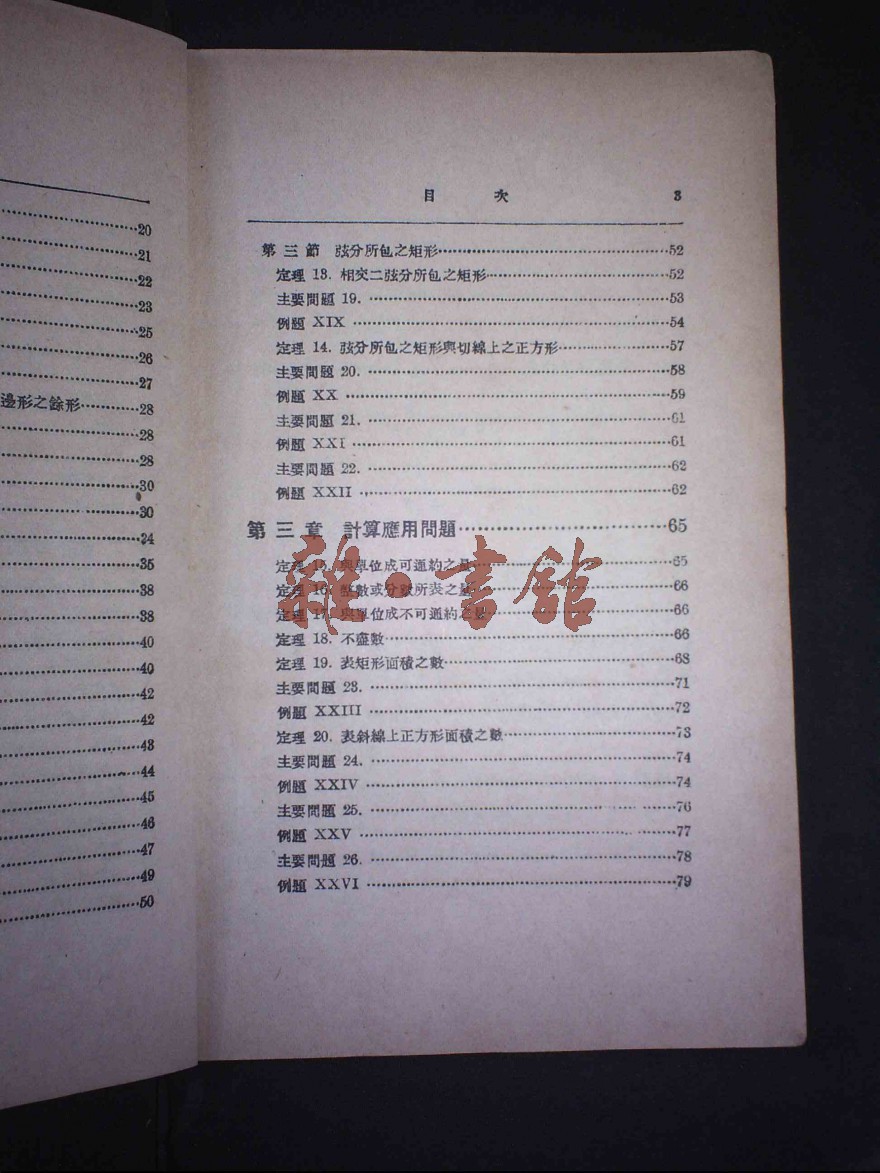 20
21
22
23
25
26
27
邊形之餘形…………28
28
28
30
30
24
35
38
38
40
40
42
42
43
44
45
46
47
49
50
目 次 3
第三節 弦分所包之矩形…………52
定理 13. 相交二弦分所包之矩形…………52
主要問題 19. …………53
例題 XIX …………54
定理 14. 弦分所包之矩形與切線上之正方形…………57
主要問題 20. …………58
例題 XX …………59
主要問題 21. …………61
例題 XXI …………61
主要問題 22. …………62
例題 XXII …………62
第三章 計算應用問題…………65
定理 15. 與單位成可通約之量…………65
定理 16. 整數或分數所表之量…………66
定理 17. 與單位成不可通約之量…………66
定理 18. 不盡數…………66
定理 19. 表矩形面積之數…………68
主要問題 23. …………71
例題 XXIII …………72
定理 20. 表斜線上正方形面積之數…………73
主要問題 24. …………74
例題 XXIV …………74
主要問題 25. …………76
例題 XXV …………77
主要問題 26. …………78
例題 XXVI …………79
雜·書館